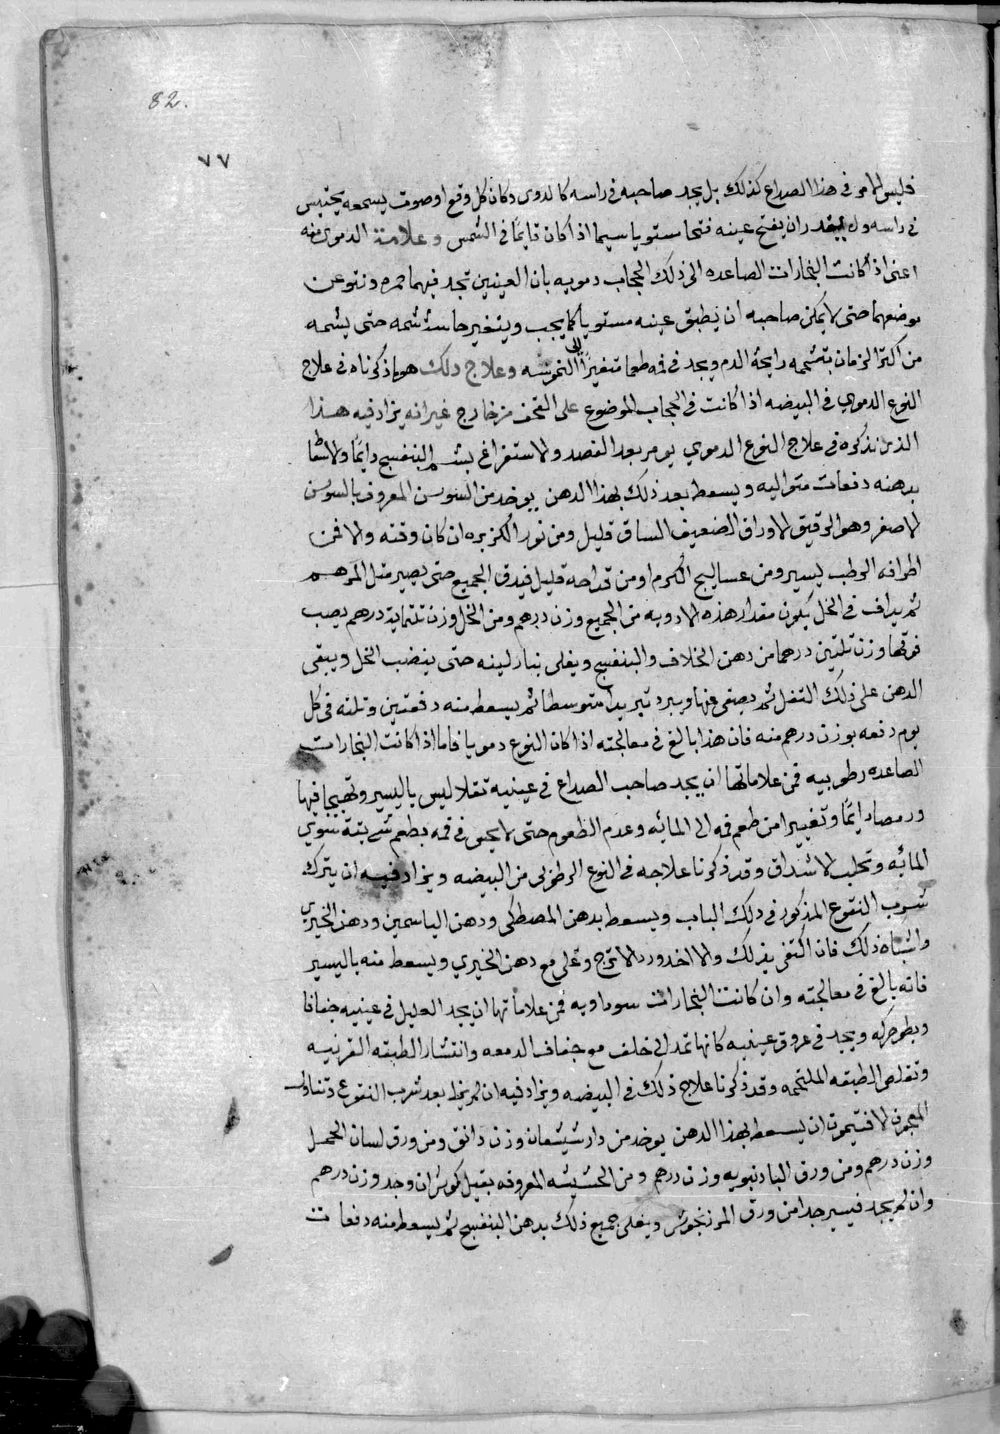 82.
٧٧
فليس الامر في هذا الصداع كذلك بل يجد صاحبه في راسه كالدوي وكان كل وقع او صوت يسمعه يحتبس
في راسه ولا يقدر ان يفتح عينه فتحا مستويا سيما اذا كان قايما في الشمس وعلامة الدموي منه
اعني اذا كانت البخارات الصاعده الى ذلك الحجاب دمويه بان العينين تجد فيهما حمره ونتو عن
موضعهما حتى لا يمكن صاحبه ان يطبق عينه مستويا كما يجب ويتغير حاسة شمه حتى يشمه
من اكثر الزمان بتشممه رايحة الدم ويجد في فمه طعما متغيرا الى وعلاج ذلك هو ما ذكرناه في علاج
النوع الدموي في البيضه اذا كانت في الحجاب الموضوع على القحف من خارج غير انه يزاد فيه هذا
الذي نذكره في علاج النوع الدموي يومر بعد الفصد والاستفراغ بشم البنفسج دايما والاستعاط
بدهنه دفعات متواليه ويسعط بعد ذلك بهذا الدهن يوخذ من السوسن المعروف بالسوسن
الاصفر وهو الرقيق الاوراق الضعيف الساق قليل ومن نور الكزبره ان كان وقته والا فمن
اطرافه الرطب يسير ومن عساليج الكرم او من قداحه قليل فيدق الجميع حتى يصير مثل المرهم
ثم يداف في الخل يكون مقدار هذه الادويه من الجميع وزن درهم ومن الخل وزن ثلثماية درهم يصب
فوقها وزن ثلثين درهما من دهن الخلاف والبنفسج ويغلى بنار لينه حتى ينضب الخل ويبقى
الدهن على ذلك الثفل ثم يصفى عنها ويبرد تبريدا متوسطا ثم يسعط منه دفعتين وثلثه في كل
يوم دفعه بوزن درهم منه فان هذا بالغ في معالجته اذا كان النوع دمويا فاما اذا كانت البخارات
الصاعده رطوبيه فمن علاماتها ان يجد صاحب الصداع في عينيه ثقلا ليس باليسير وتهيجا فيها
ورمصا دايما وتغييرا من طعم فمه الى المائيه وعدم الطعوم حتى لا يحس في فمه بطعم شي بتة سوى
المائيه وتحلب الاشداق وقد ذكرنا علاجه في النوع الرطوبي من البيضه ويزاد فيه ان يترك
شرب النقوع المذكور في ذلك الباب ويسعط بدهن المصطكي ودهن الياسمين ودهن الخيري
واشباه ذلك فان اكتفى بذلك والا اخذ ورد الاترج وغلي مع دهن الخيري ويسعط منه باليسير
فانه بالغ في معالجته وان كانت البخارات سوداويه فمن علاماتها ان يجد العليل في عينيه جفافا
وبطو حركه ويجد في عروق عينيه كانها تمد الى خلف مع جفاف الدمعه وانتشار الطبقه القرنيه
وتقلص الطبقه الملتحمه وقد ذكرنا علاج ذلك في البيضه ويزاد فيه ان بعد شرب النقوع وتناول
المعجون الافتيمون ان يسعط بهذا الدهن يوخذ من دارشيشعان وزن دانق ومن ورق لسان الحمل
وزن درهم ومن ورق البادنبويه وزن درهم ومن الحشيشه المعروفه ان وجد وزن درهم
وان لم يجد فيسير جدا من ورق المرزنجوش ويغلى جميع ذلك بدهن البنفسج ثم يسعط منه دفعات